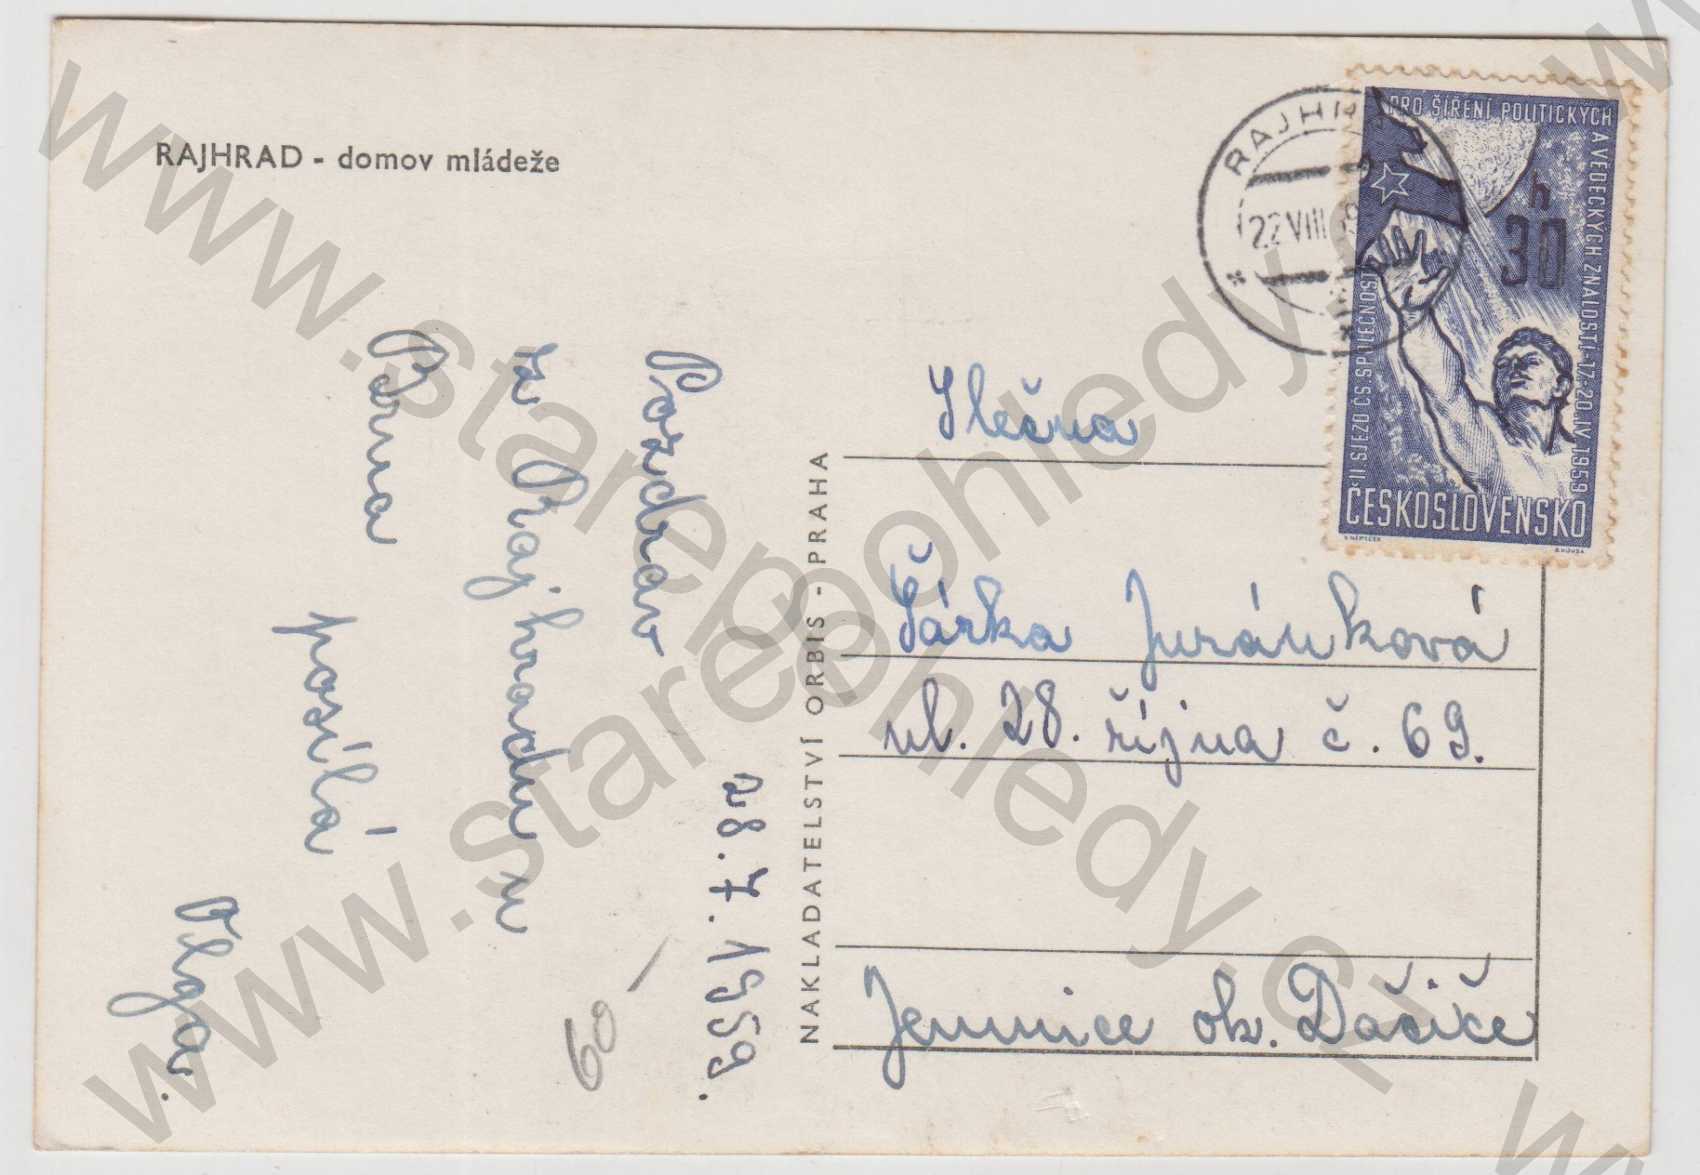 RAJHRAD - domov mládeže
Pozdrav
z Rajhradu u
Brna
posílá
Olga.
28.7.1959.
60 -
NAKLADATELSTVÍ ORBIS - PRAHA
Slečna
Šárka Juránková
ul. 28. října č. 69.
Jemnice ok. Dačice
RAJHR
22 VIII
PRO ŠÍŘENÍ POLITICKÝCH
A VĚDECKÝCH ZNALOSTÍ-17.-20.IV.1959
II SJEZD ČS.SPOLEČNOSTI
30 h
ČESKOSLOVENSKO
www.starepohledy.cz
www.starepohledy.cz